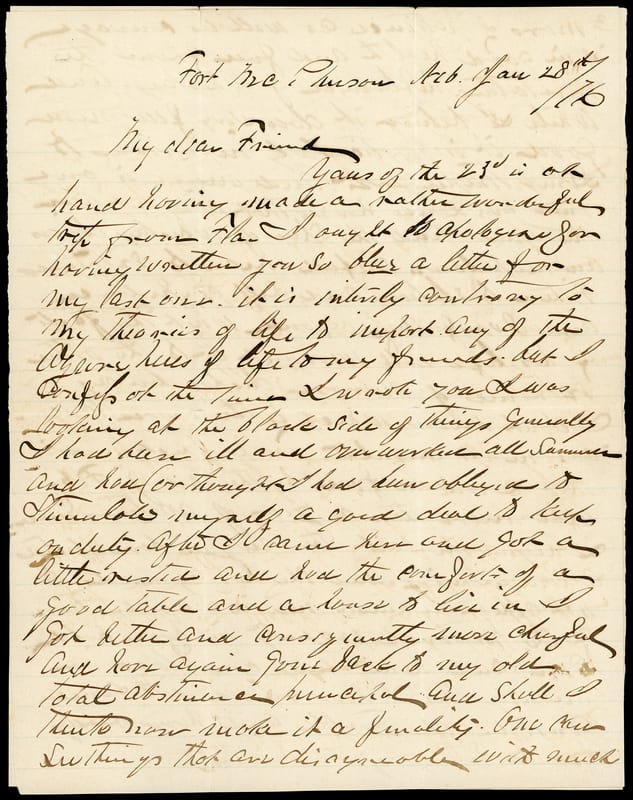 Fort McPherson Neb. Jan 28th
/76
My dear Friend
Yours of the 23d is at
hand having made a rather wonderful
trip from Fla. I ought to apologize for
having written you so blue a letter for
my last one. it is intirely contrary to
my theories of life to impart any of the
of life to my friends. but I
Confess at the time I wrote you I was
looking at the black side of things generally
I had been ill and overworked all Summer
and had (or thought I had been obliged to
Stimulate myself a good deal to keep
on duty. After I came here and got a
little rested and had the comforts of a
good table and a house to live in I
got better and consequently more cheerful
and have again gone back to my old
total abstinence principal and Shall I
think now make it a finality. One can
things that are disagreeable with much